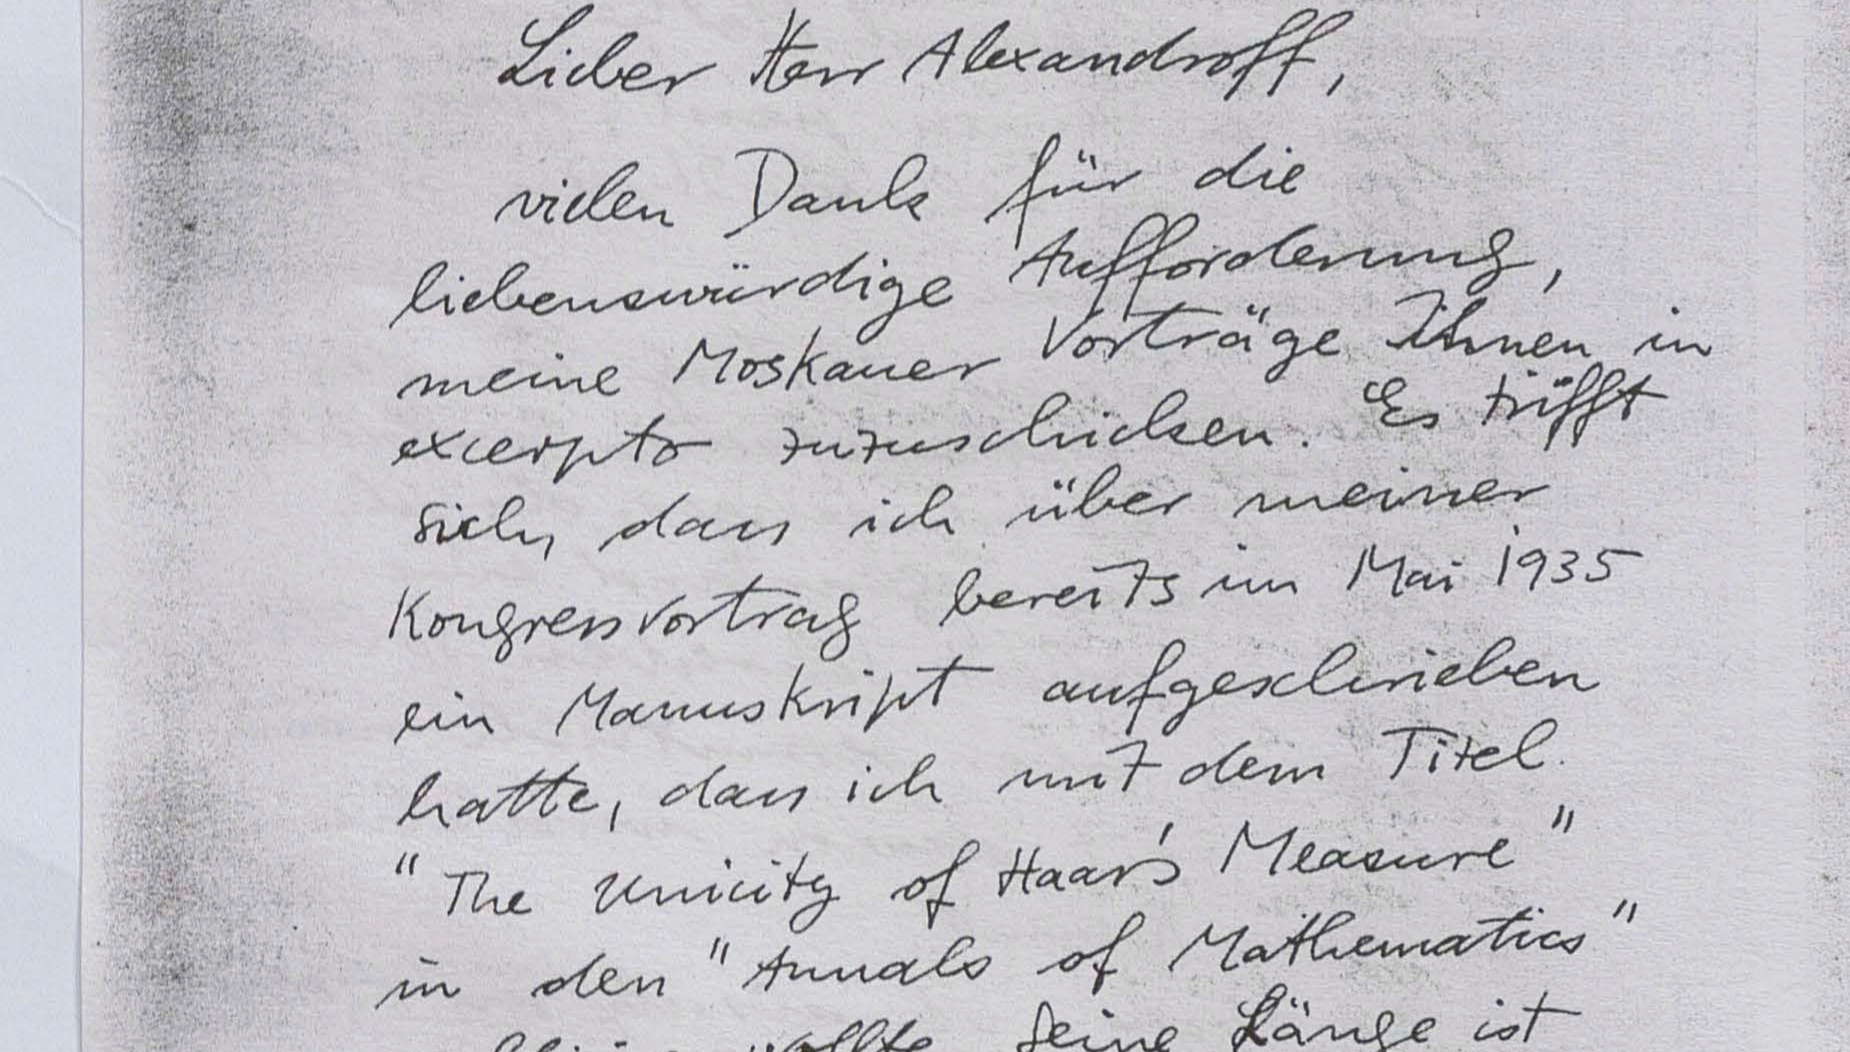 Lieber Herr Alexandroff,
vielen Dank für die
liebenswürdige Aufforderung,
meine Moskauer Vorträge Ihnen in
excerpto zuzuschicken. Es trifft
sich, dass ich über meiner
Kongressvortrag bereits im Mai 1935
ein Manuskript aufgeschrieben
hatte, dass ich mit dem Titel
"The Unicity of Haar's Measure"
in den "Annals of Mathematics"
wollte Seine Länge ist